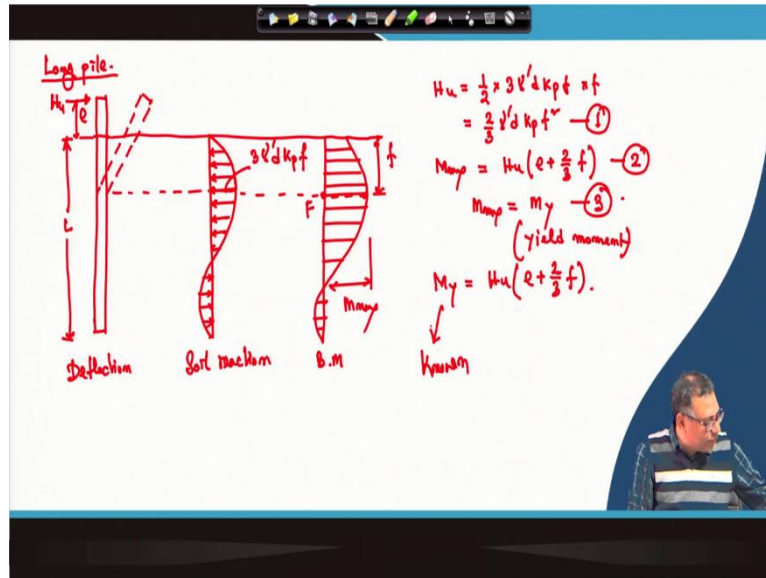 Long pile.
Hu
e
L
3γ'd kp f
f
F
Mmax
Deflection
Soil reaction
B.M
Hu = 1/2 × 3γ'd kp f × f
= 2/3 γ'd kp f² —①
Mmax = Hu(e + 2/3 f) —②
Mmax = My —③
(yield moment)
My = Hu(e + 2/3 f).
Known